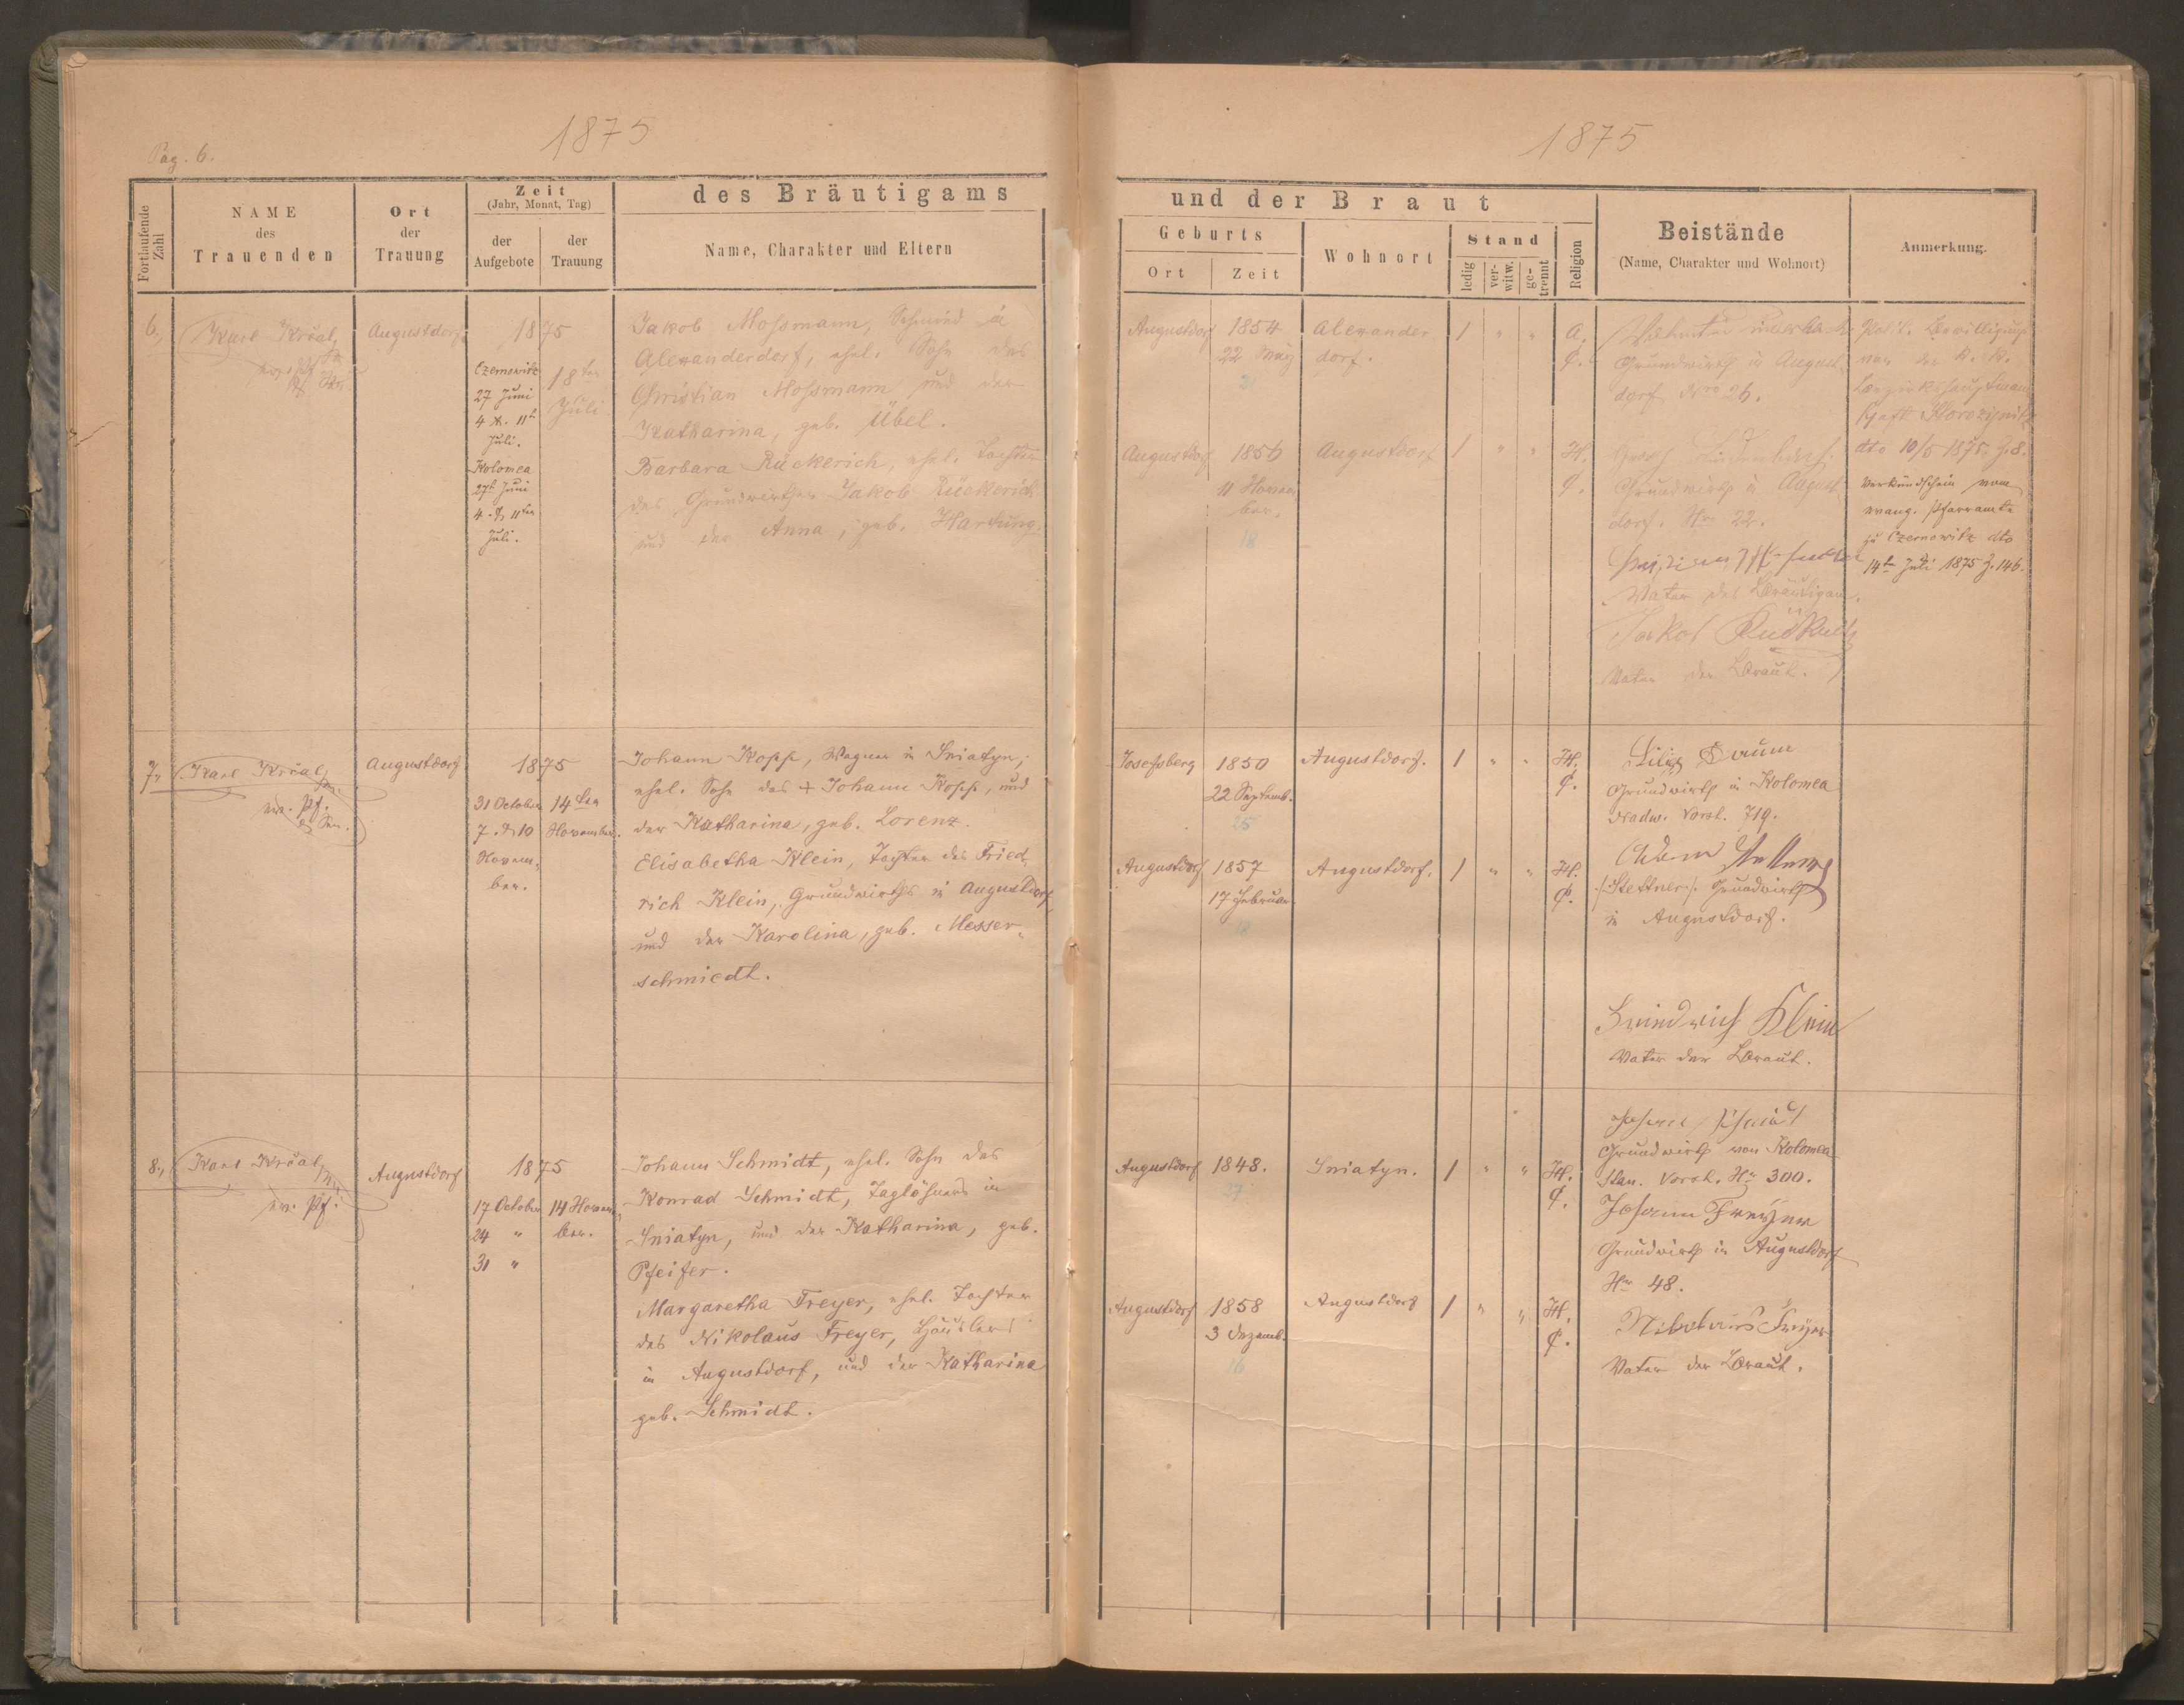 Pag. 6.
1875
1875
Fortlaufende Zahl
NAME
des
Trauenden
Ort
der
Trauung
Zeit
(Jahr, Monat, Tag)
der
Aufgebote
der
Trauung
des Bräutigams
Name, Charakter und Eltern
und der Braut
Geburts
Ort
Zeit
Wohnort
Stand
ledig
ver-
witw.
ge-
trennt
Religion
Beistände
(Name, Charakter und Wohnort)
Anmerkung.
6.,
Karl Král,
Augustdorf
1875
Czernowitz
27 Juni
4 & 11t
Juli.
Kolomea
27t Juni
4. & 11ten
Juli.
18ten
Juli
Jakob Mossmann, Schmied in
Alexanderdorf, ehel. Sohn des
Christian Mossmann und der
Katharina, geb. Übel.
Barbara Rückerich, ehel. Tochter
des Grundwirthen Jakob Rückerich
und der Anna, geb. Hartung.
Augustdorf
1854
22 May
21
Alexander
dorf.
1 " "
A.
C.
Grundwirth in August
dorf Nro 26.
Augustdorf
1856
11 Novem
ber.
18
Augustdorf
1 " "
H.
C.
Grundwirth in August
dorf. Nr. 22.
Vater des Bräutigam.
Jakob
Vater der Braut.
Polit. Bewilligung
von der K. K.
Bezirkshauptmann
schaft Horodenka
dto 10/5 1875. Z. 8.
Verkündschein vom
evang. Pfarramte
zu Czernowitz dto
14te Juli 1875 Z. 146.
7.,
Karl Král,
ev. Pf.
& Sen.
Augustdorf
1875
31 October
7. & 10
Novem-
ber.
14ten
November.
Johann Kopp, Wagner in Sniatyn,
ehel. Sohn des + Johann Kopp, und
der Katharina, geb. Lorenz.
Elisabetha Klein, Tochter des Fried
rich Klein, Grundwirths in Augustdorf,
und der Karolina, geb. Messer-
schmiedt.
Josefsberg
1850
22 Septemb.
25
Augustdorf.
1 " "
H.
C.
Grundwirth in Kolomea
Nadw. Vorst. 719.
Augustdorf
1857
17 Februar
18
Augustdorf.
1 " "
H.
C.
/:Stettner:/ Grundwirth
in Augustdorf.
Friedrich Klein
Vater der Braut.
8.,
Karl Král,
ev. Pf.
Augustdorf
1875
17 October
24 "
31 "
14 Novem-
ber.
Johann Schmidt, ehel. Sohn des
Konrad Schmidt, Taglöhners in
Sniatyn, und der Katharina, geb.
Pfeifer.
Margaretha Freyer, ehel. Tochter
des Nikolaus Freyer, Häuslers
in Augustdorf, und der Katharina
geb. Schmidt.
Augustdorf
1848.
27
Sniatyn.
1 " "
H.
C.
Grundwirth von Kolomea
Stan. Vorst. Nr 300.
Johann Freyer
Grundwirth in Augustdorf
Nr 48.
Augustdorf
1858
3 Dezemb.
16
Augustdorf
1 " "
H.
C.
Nikolaus Freyer
Vater der Braut.